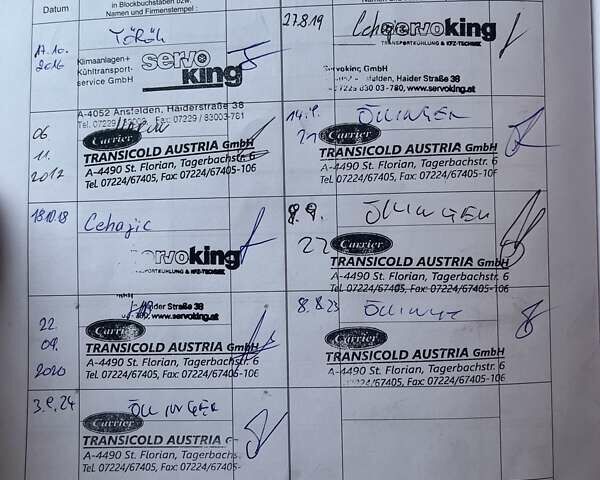 Datum
in Blockbuchstaben bzw.
Namen und Firmenstempel :
17.10.
2016
TÖRÖK
Klimaanlagen+
Kühltransport-
service GmbH
servo
king
A-4052 Ansfelden, Haiderstraße 38
Tel. 07229/83003, Fax: 07229 / 83003-781
06
11.
2017
Carrier
TRANSICOLD AUSTRIA GmbH
A-4490 St. Florian, Tagerbachstr. 6
Tel. 07224/67405, Fax: 07224/67405-106
18.10.18
Cehajic
servoking
TRANSPORTKÜHLUNG & KFZ-TECHNIK
Haider Straße 38
www.servoking.at
22.
09.
2020
Carrier
TRANSICOLD AUSTRIA GmbH
A-4490 St. Florian, Tagerbachstr. 6
Tel. 07224/67405, Fax: 07224/67405-106
3.9.24
ÖLLINGER
Carrier
TRANSICOLD AUSTRIA G
A-4490 St. Florian, Tagerbachs
Tel. 07224/67405, Fax: 07224/67405-
27.8.19
servoking
TRANSPORTKÜHLUNG & KFZ-TECHNIK
Servoking GmbH
4052 Ansfelden, Haider Straße 38
07229 830 03-780, www.servoking.at
14.9.
21
ÖLLINGER
Carrier
TRANSICOLD AUSTRIA GmbH
A-4490 St. Florian, Tagerbachstr. 6
Tel. 07224/67405, Fax: 07224/67405-106
8.9.
22
ÖLLINGER
Carrier
TRANSICOLD AUSTRIA GmbH
A-4490 St. Florian, Tagerbachstr. 6
Tel. 07224/67405, Fax: 07224/67405-106
8.8.23
ÖLLINGER
Carrier
TRANSICOLD AUSTRIA GmbH
A-4490 St. Florian, Tagerbachstr. 6
07224/67405, Fax: 07224/67405-106